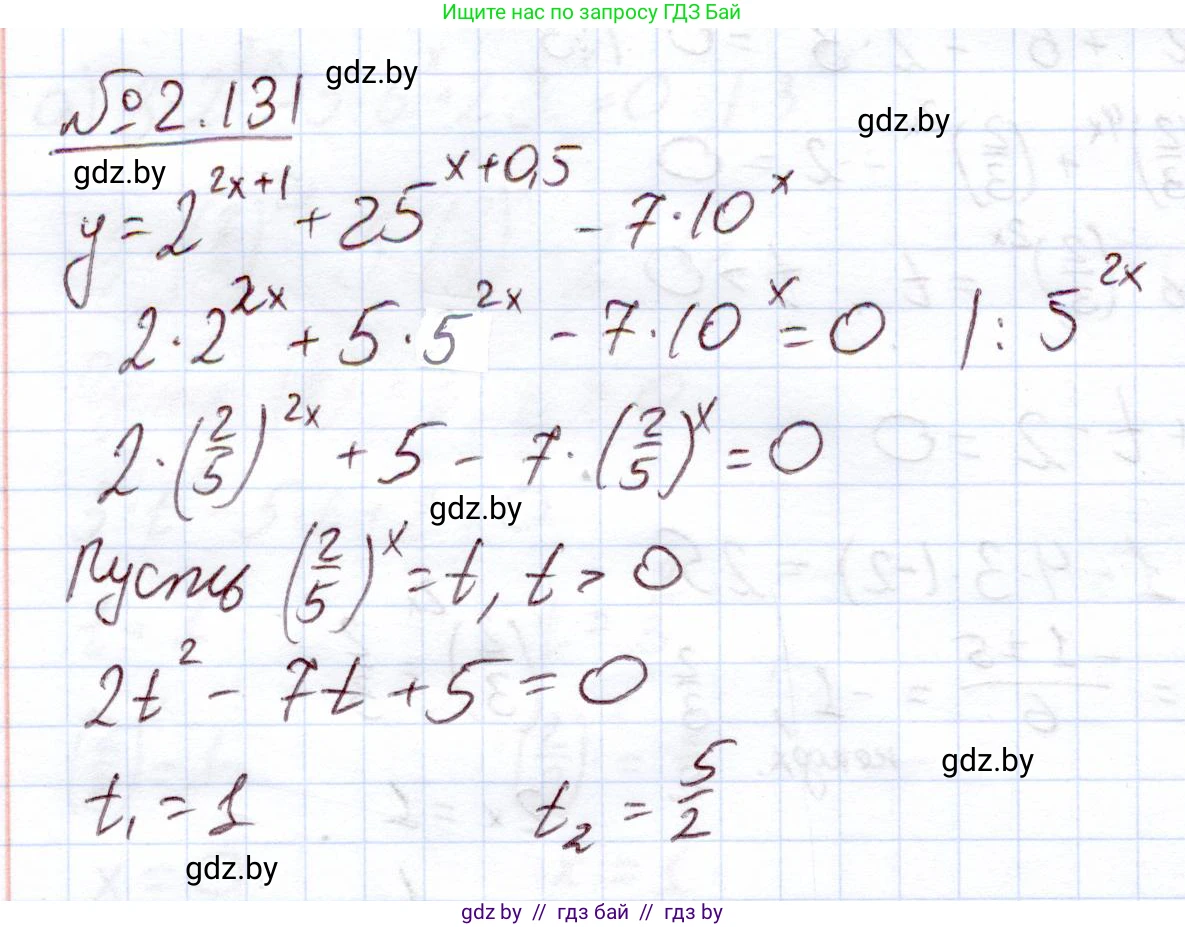 Ищите нас по запросу ГДЗ Бай
№ 2.131
gdz.by
gdz.by
gdz.by
y = 2^{2x+1} + 25^{x+0,5} - 7·10^x
2·2^{2x} + 5·5^{2x} - 7·10^x = 0 | : 5^{2x}
2·(2/5)^{2x} + 5 - 7·(2/5)^x = 0
gdz.by
Пусть (2/5)^x = t, t > 0
2t² - 7t + 5 = 0
gdz.by
t₁ = 1 t₂ = 5/2
gdz.by
gdz by // гдз бай // гдз by